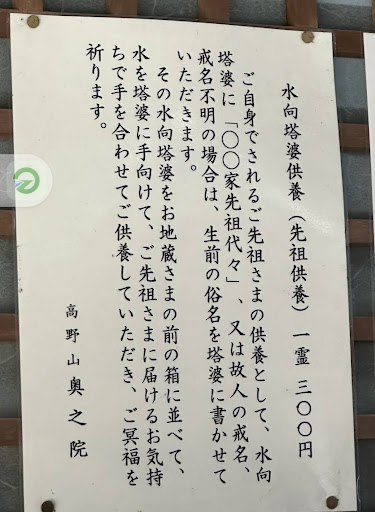 水向塔婆供養（先祖供養）一霊 三〇〇円
ご自身でされるご先祖さまの供養として、水向
塔婆に「〇〇家先祖代々」、又は故人の戒名、
戒名不明の場合は、生前の俗名を塔婆に書かせて
いただきます。
その水向塔婆をお地蔵さまの前の箱に並べて、
水を塔婆に手向けて、ご先祖さまに届けるお気持
ちで手を合わせてご供養していただき、ご冥福を
祈ります。
高野山奥之院